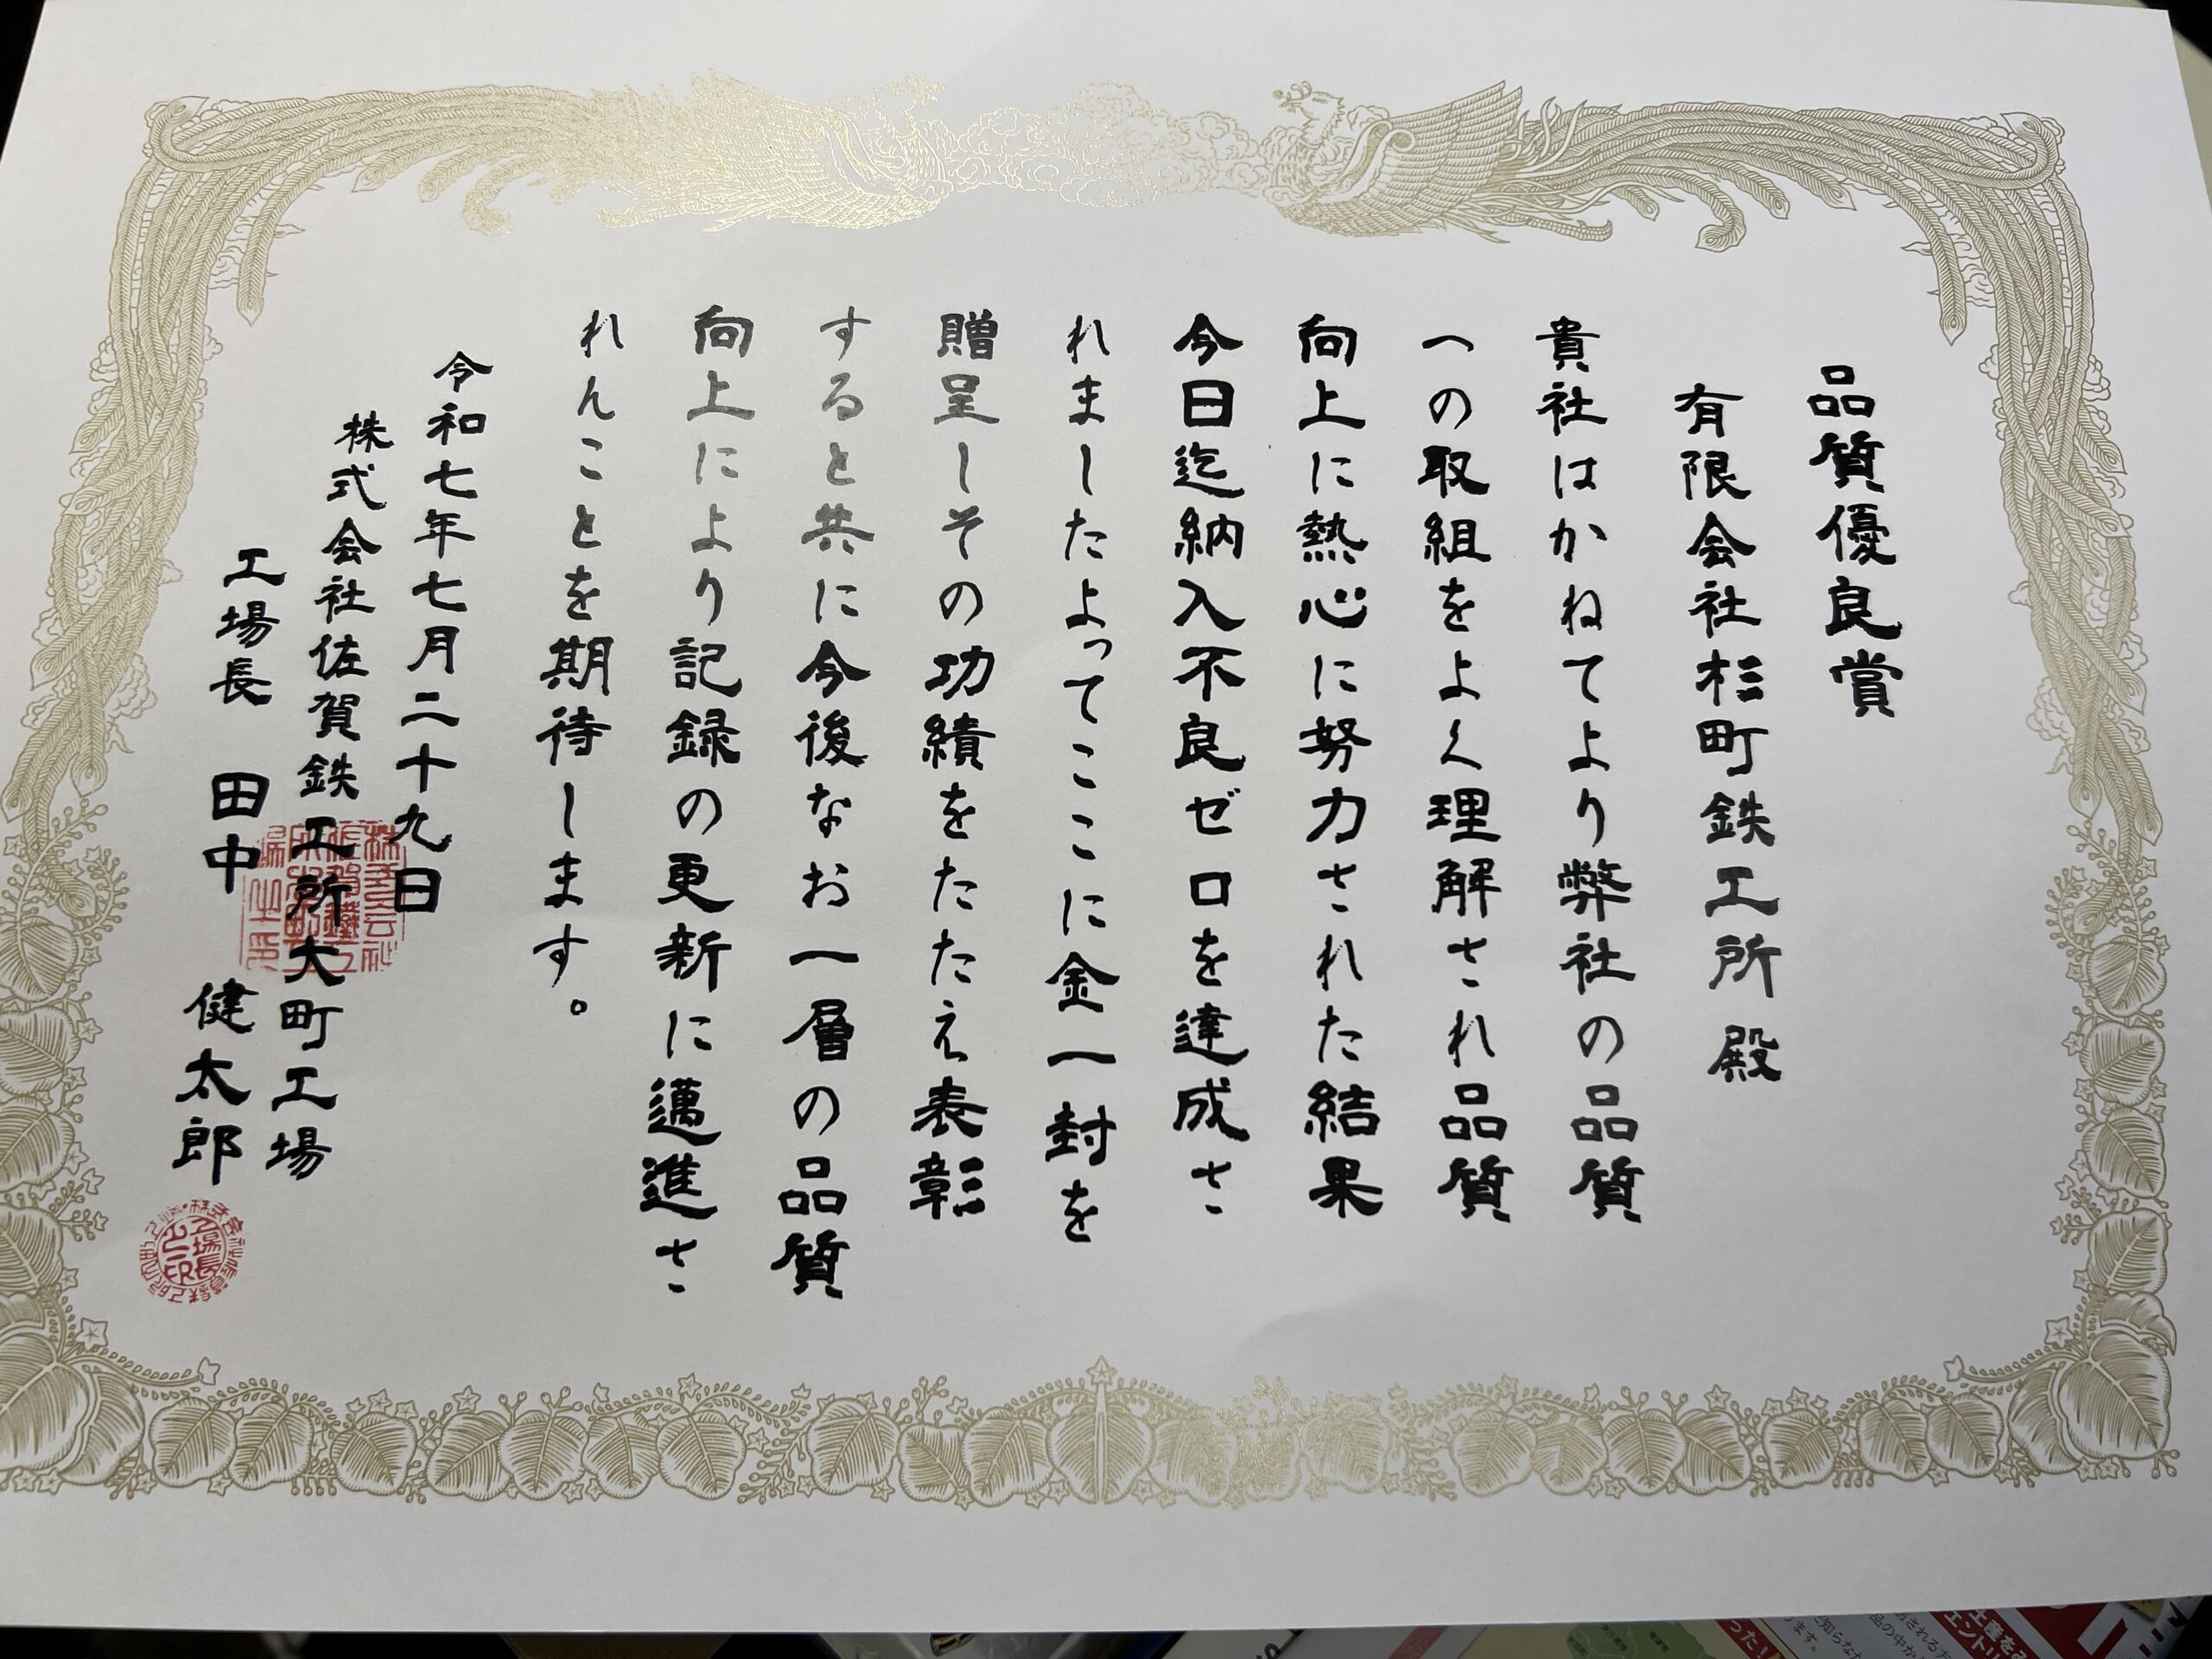 品質優良賞
有限会社杉町鉄工所 殿
貴社はかねてより弊社の品質
への取組をよく理解され品質
向上に熱心に努力された結果
今日迄納入不良ゼロを達成さ
れましたよってここに金一封を
贈呈しその功績をたたえ表彰
すると共に今後なお一層の品質
向上により記録の更新に邁進さ
れんことを期待します。
令和七年七月二十九日
株式会社佐賀鉄工所大町工場
工場長 田中 健太郎
工場長
之印